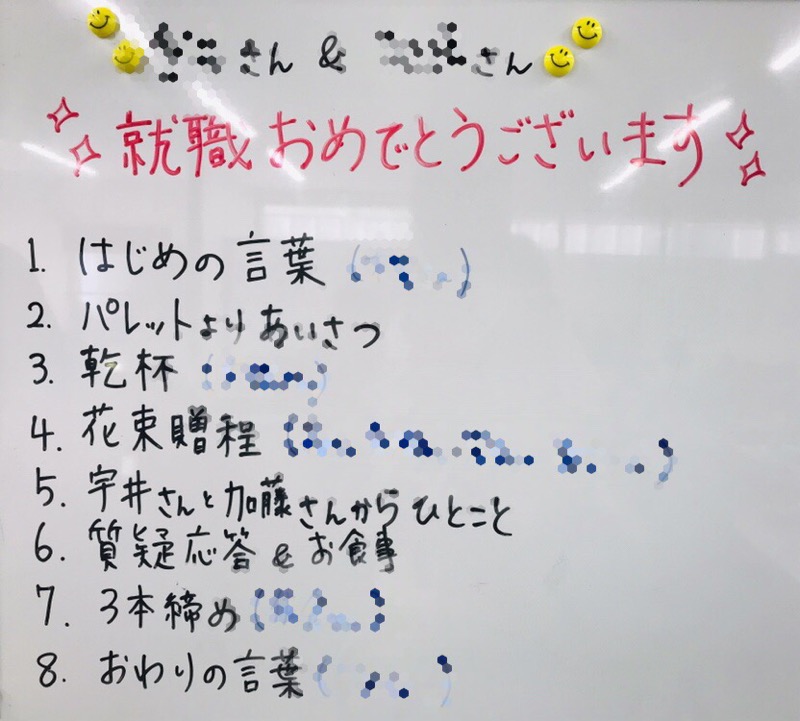 さん & さん
就職おめでとうございます
1. はじめの言葉
2. パレットよりあいさつ
3. 乾杯
4. 花束贈程
5. 宇井さんと加藤さんからひとこと
6. 質疑応答 & お食事
7. 3本締め
8. おわりの言葉